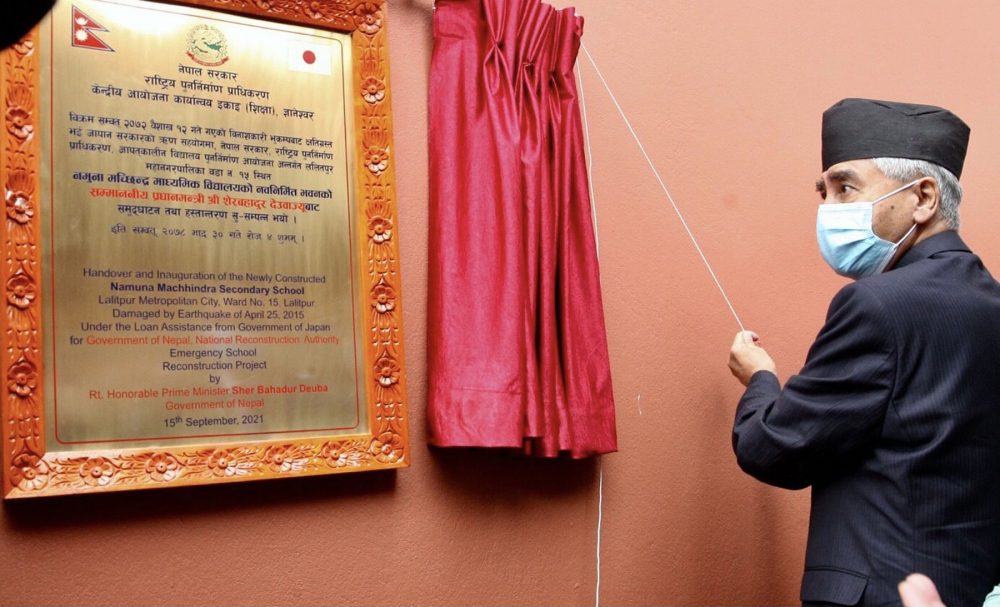 नेपाल सरकार
राष्ट्रिय पुनर्निर्माण प्राधिकरण
केन्द्रीय आयोजना कार्यान्वय इकाइ (शिक्षा), ज्ञानेश्वर
विक्रम सम्बत् २०७२ वैशाख १२ गते गएको विनाशकारी भूकम्पबाट क्षतिग्रस्त
भई जापान सरकारको ऋण सहयोगमा, नेपाल सरकार, राष्ट्रिय पुनर्निर्माण
प्राधिकरण, आपतकालीन विद्यालय पुनर्निर्माण आयोजना अन्तर्गत ललितपुर
महानगरपालिका वडा न १५ स्थित
नमुना मच्छिन्द्र माध्यमिक विद्यालयको नवनिर्मित भवनको
सम्माननीय प्रधानमन्त्री श्री शेरबहादुर देउवाज्यूबाट
समुद्घाटन तथा हस्तान्तरण सु-सम्पन्न भयो ।
इति सम्बत् २०७८ भाद्र ३० गते रोज ४ शुभम् ।
Handover and Inauguration of the Newly Constructed
Namuna Machhindra Secondary School
Lalitpur Metropolitan City, Ward No. 15. Lalitpur
Damaged by Earthquake of April 25, 2015
Under the Loan Assistance from Government of Japan
for Government of Nepal, National Reconstruction Authority
Emergency School
Reconstruction Project
by
Rt. Honorable Prime Minister Sher Bahadur Deuba
Government of Nepal
15th September, 2021